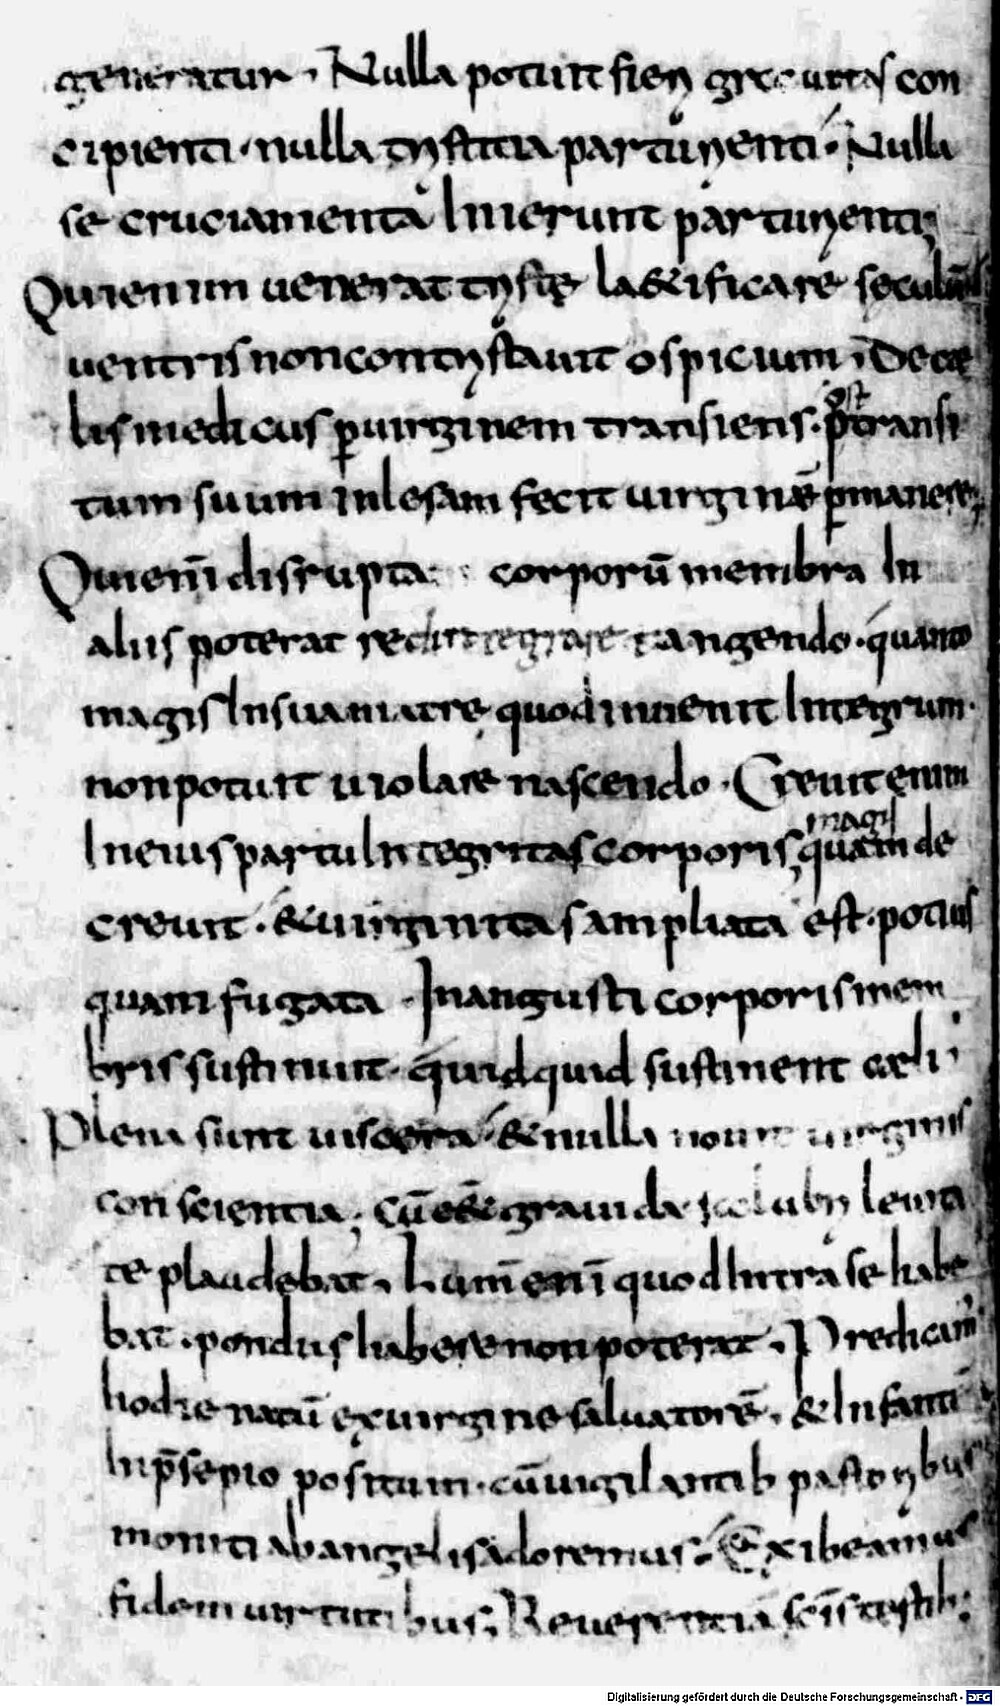 generatur. Nulla potuit fieri gra uitas con
cipienti. nulla tristitia parturienti. Nulla
se cruciamenta Inierunt parturienti;
Qui enim uenerat triste laetificare seculū
uentris non contristauit ospicium, De cae
lis medicus p uirginem transiens. p ost transi
tum suum inlesam fecit uirginē pmanere,
Qui enī disrupta corporū membra In
aliis poterat redintegrare tangendo. quanto
magis In sua matre quod inuenit Integrum.
non potuit uiolare nascendo. Creuit enim
In eius partu Integritas corporis magis quam de
creuit. & uirginitas ampliata est. potius
quam fugata. In angusti corporis mem
bris sustinuit. quidquid sustinent caeli,
Pleni sunt uiscera. & nulla nouit uirginis
conscientia; Cū e&& grauida leuita
te plaudebat, Lumē enī quod Intra se habe
bat. pondus habere non poterat, Predicam
hodie natū ex uirgine saluatorē, & Infantē
In p̄sepio positum. cū uigilantib pastoribus
moniti ab angelis adoremus. Exibeamus
fidem uirtutibus, Reuerentia